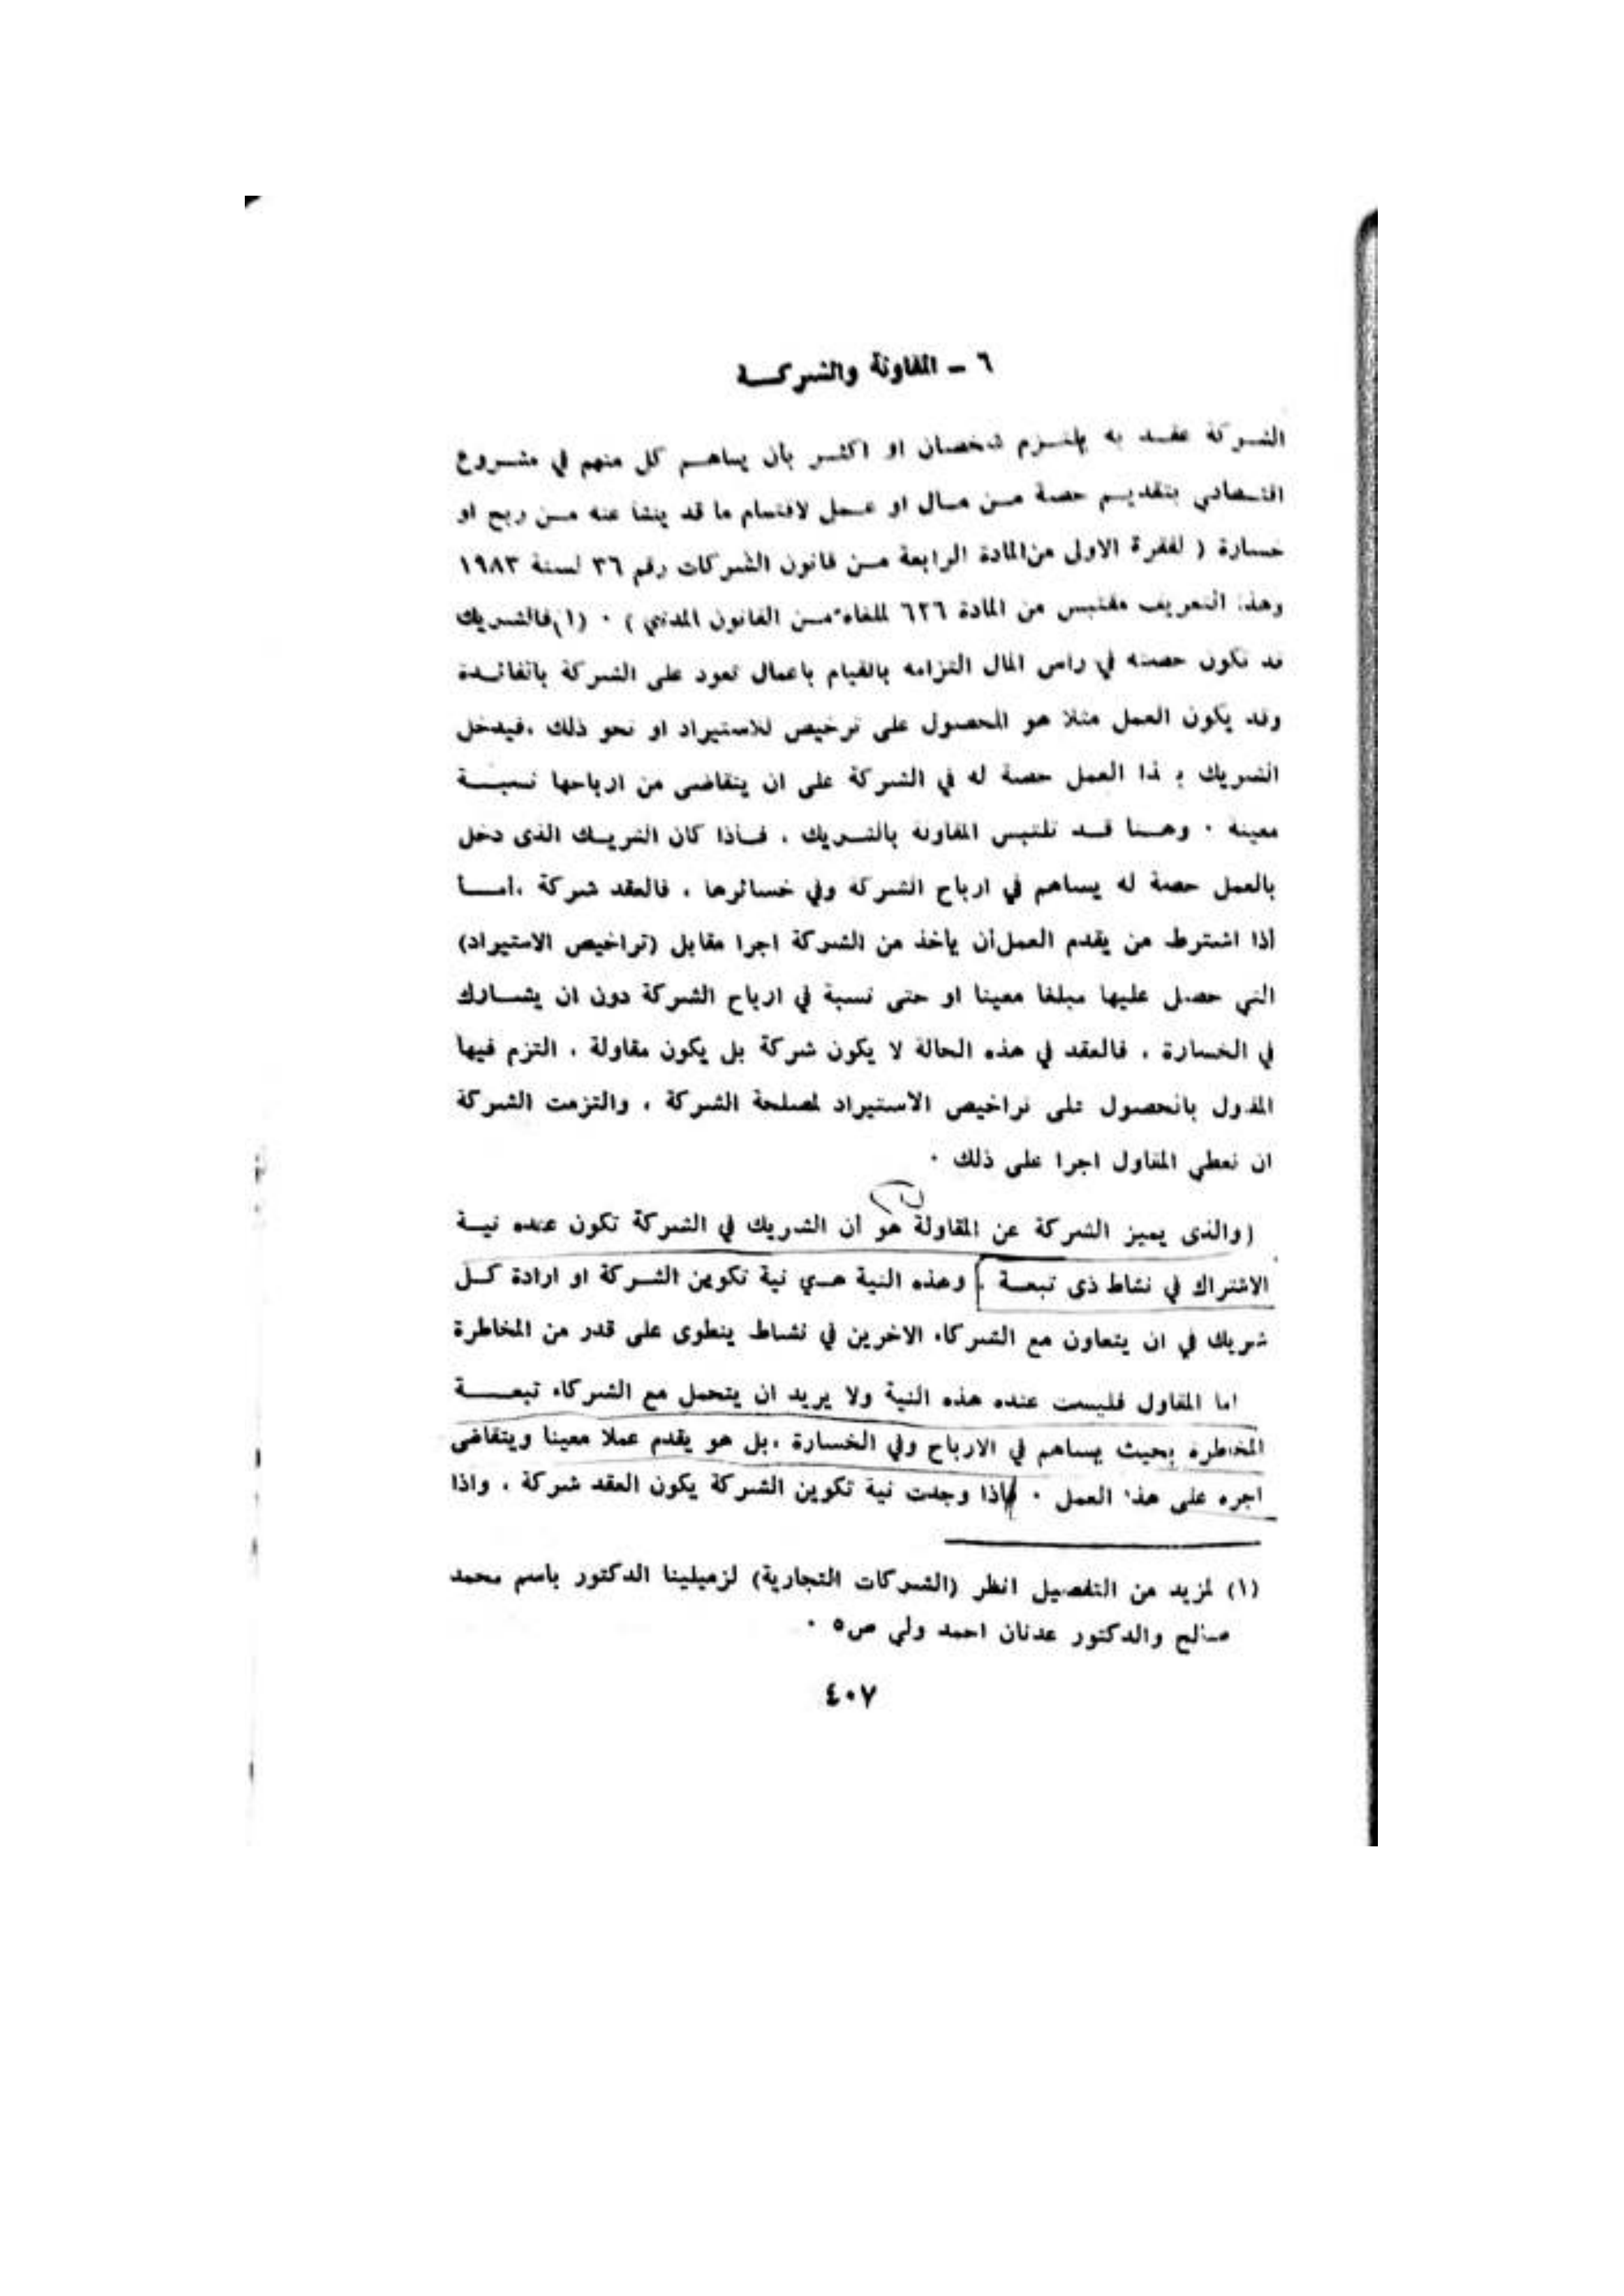 ٦ ـ المقاولة والشركـــة
الشـركة عقـد به يلتـزم شخصان او اكثـر بأن يساهـم كل منهم في مشـروع
اقتـصادي بتقديـم حصة مـن مـال او عـمل لاقتسام ما قد ينشأ عنه مـن ربح او
خسارة ( لفقرة الاولى من المادة الرابعة مـن قانون الشركات رقم ٣٦ لسنة ١٩٨٣
وهذا التعريف مقتبس من المادة ٦٢٦ الملغاة مـن القانون المدني ) ٠ (١)فالشـريك
قد تكون حصته في راس المال التزامه بالقيام باعمال تعود على الشركة بالفائـدة
وقد يكون العمل مثلا هو الحصول على ترخيص للاستيراد او نحو ذلك ،فيدخل
الشريك بهذا العمل حصة له في الشركة على ان يتقاضى من ارباحها نسبـــة
معينة ٠ وهـنا قـد تلتبس المقاولة بالشـريك ، فـأذا كان الشريـك الذى دخل
بالعمل حصة له يساهم في ارباح الشركة وفي خسائرها ، فالعقد شركة ،أمــا
أذا اشترط من يقدم العمل أن يأخذ من الشركة اجرا مقابل (تراخيص الاستيراد)
التي حصل عليها مبلغا معينا او حتى نسبة في ارباح الشركة دون ان يشــارك
في الخسارة ، فالعقد في هذه الحالة لا يكون شركة بل يكون مقاولة ، التزم فيها
المقاول بالحصول على تراخيص الاستيراد لمصلحة الشركة ، والتزمت الشركة
ان تعطي المقاول اجرا على ذلك ٠
(والذى يميز الشركة عن المقاولة هو أن الشريك في الشركة تكون عنده نيــة
الاشتراك في نشاط ذى تبعـــة ، وهذه النية هـي نية تكوين الشـركة او ارادة كـل
شريك في ان يتعاون مع الشركاء الاخرين في نشاط ينطوى على قدر من المخاطرة
اما المقاول فليست عنده هذه النية ولا يريد ان يتحمل مع الشركاء تبعــــة
المخاطره بحيث يساهم في الارباح وفي الخسارة ،بل هو يقدم عملا معينا ويتقاضى
اجره على هذا العمل ٠ فاذا وجدت نية تكوين الشركة يكون العقد شركة ، واذا
(١) لمزيد من التفصيل انظر (الشركات التجارية) لزميلينا الدكتور باسم محمد
صالح والدكتور عدنان احمد ولي ص٥ ٠
٤٠٧